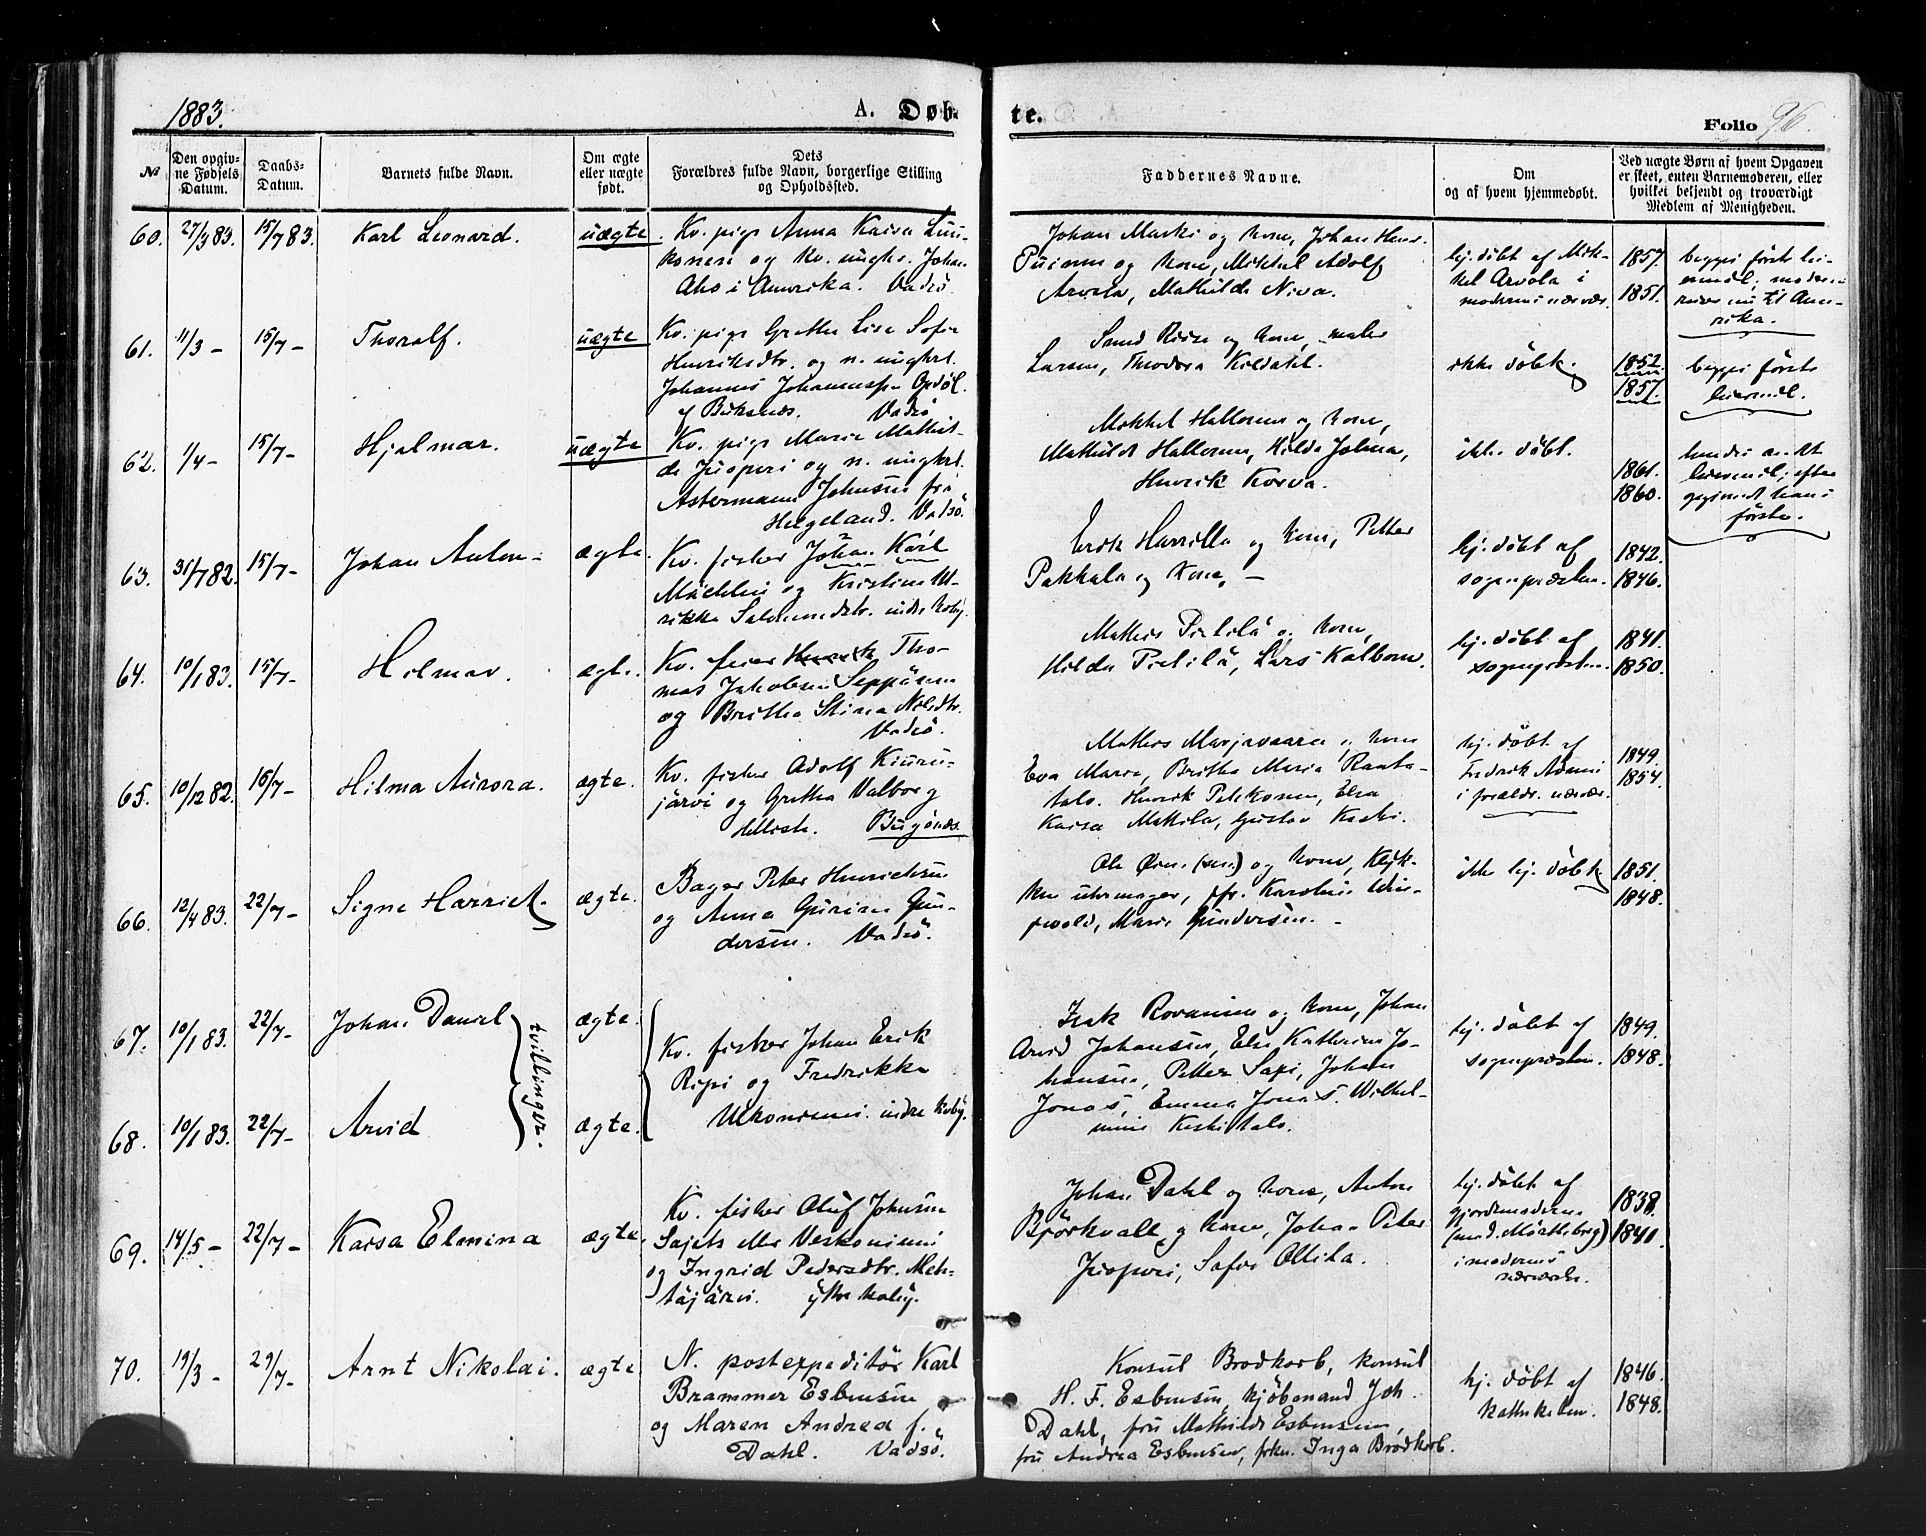 1883.
A. Døb-
te.
Folio 96.
№
Den opgiv-
ne Fødsels
Datum.
Daabs-
Datum.
Barnets fulde Navn.
Om ægte
eller uægte
født.
Dets
Forældres fulde Navn, borgerlige Stilling
og Opholdssted.
Faddernes Navne.
Om
og af hvem hjemmedøbt.
Ved uægte Børn af hvem Opgaven
er skeet, enten Barnemoderen, eller
hvilket bekjendt og troværdigt
Medlem af Menigheden.
60. 27/3 83. 15/7 83. Karl Leonard. uægte.
Kv. pige Anna Kaisa Luu-
konen og kv. ungkr. Johan
Aho i Amerika. Vadsö.
Johan Marki og kone, Johan Henr.
og kone, Mikkel Adolf
Arvola, Mathilde Niva.
hj. döbt af Mik-
kel Arvola i
moderens nærvær.
1857.
1851.
begges förste lei-
ermål; moderen
reiser nu til Ame-
rika.
61. 11/3 - 15/7 - Thoralf. uægte
Kv. pige Grethe Lise Sofie
Henriksdtr. og n. ungkrl.
Johannes Johannessen Opdöl
Vadsö
og kone, maler
Larsen, Theodora Kildahl.
ikke döbt.
1852.
1857.
begges förste
leiermål.
62. 1/4 - 15/7 - Hjalmar. uægte
Kv. pige Maria Mathil-
de Juoperi og n. ungkrl.
Astermann Johnsen fra
Helgeland. Vadsö.
Mikkel Hallonen og kone,
Mathilde Hallonen, Hilda Johna,
Henrik Korva.
ikke döbt.
1861.
1860.
hendes andet
leiermål; efter
opgivende hans
förste.
63. 31/7 82. 15/7 - Johan Anton - ægte.
Kv. fisker Johan Karl
og Kristine Ul-
rikka Salomonsdtr. indre kvby.
Erik Harrilla og kone, Petter
Pakkala og kone, -
hj. döbt af
sognepræsten.
1842.
1846.
64. 10/1 83. 15/7 - Hilmar. ægte.
Kv. feier Henrik Tho-
mas Jakobsen Seppänen
og Britha Stina Nilsdtr.
Vadsö.
Mathis Pietilä og kone,
Hilda Pietilä, Lars Kalbom.
hj. döbt af
sognepræsten.
1841.
1850.
65. 10/12 82. 16/7 - Hilma Aurora. ægte.
Kv. fisker Adolf Kiuru-
järvi og Gretha Valborg
Bugönæs.
Mathis Marjavaara og kone
Eva Maria, Britha Maria Rauta-
talo. Henrik Pekkonen, Elsa
Kaisa Mattila, Gustav Keski.
hj. döbt af
Fredrik
i forældr. nærvær.
1849.
1854.
66. 12/4 83. 22/7 - Signe Harriet. ægte.
Bager Peter Henrichsen
og Anna Gurine Gun-
dersen. Vadsö.
Ole Ørn. (sen.) og kone,
uhrmager, jfr. Karoline Win-
, Marie Gundersen. -
ikke hj. döbt.
1851.
1848.
67. 10/1 83. 22/7 - Johan Daniel ægte.
68. 10/1 83. 22/7 - Arvid ægte.
tvillinger.
Kv. fisker Johan Erik
Ripi og Fredrikke
Ukonniemi. indre kvby.
Isak Rovanien og kone, Johan
Arvid Johansen, Else Katherine Jo-
hansen, Petter Sapi, Johan
Jonas, Emma Jonas. Wilhel-
mine Keskitalo.
hj. döbt af
sognepræsten.
1849.
1848.
69. 14/5 - 22/7 - Kaisa Elmina ægte.
Kv. fisker Oluf Johnsen
Sajets eller Veskoniemi
og Ingrid Pedersdtr. Meh-
täjärvi. ytre kvby.
Johan Dahl og kone, Anton
Björkvall og kone, Johan Peter
Juoperi, Sofie Ollila.
hj. döbt af
gjordemoderen
i moderens
nærværelse.
1838.
1840.
70. 19/3 - 29/7 - Arnt Nikolai. ægte.
N. postexpeditör Karl
Brammer Esbensen
og Maren Andrea f.
Dahl. Vadsö.
Konsul Brodkorb, konsul
H. F. Esbensen, kjöbmand Joh.
Dahl, fru Mathilde Esbensen,
fru Andrea Esbensen, frkn. Inga Brodkorb.
hj. döbt af
kateketen.
1846.
1848.